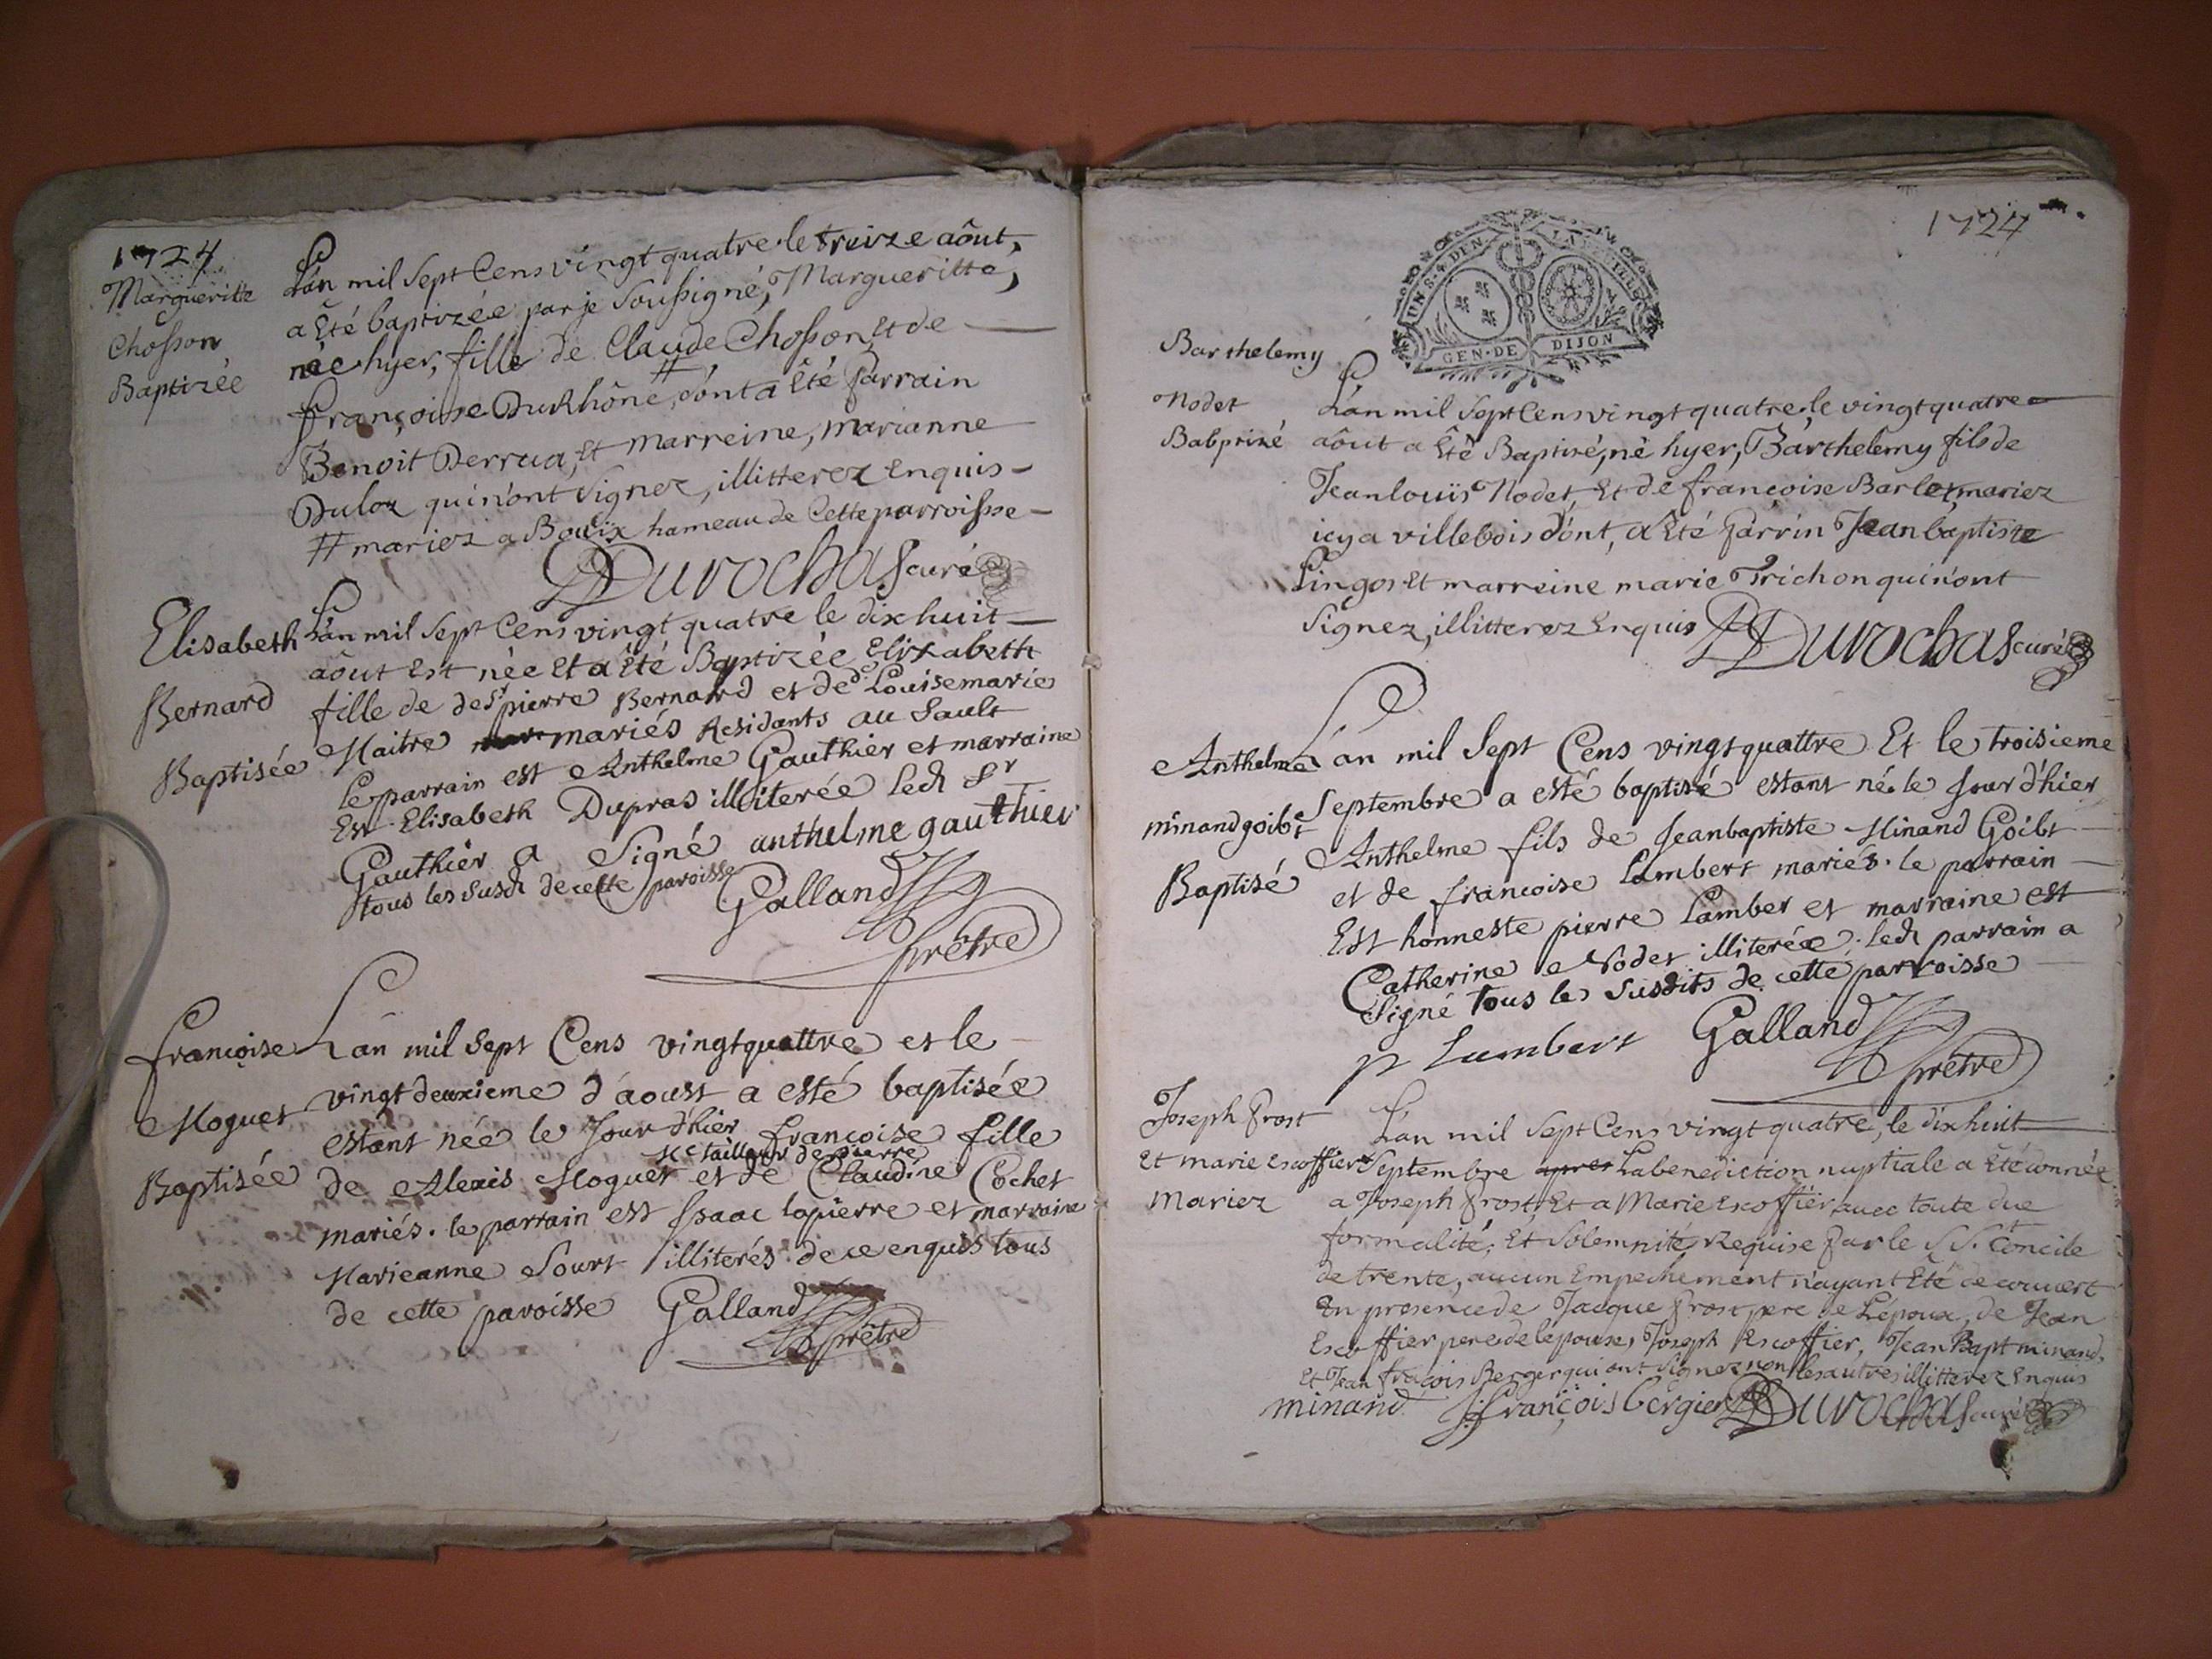 1724
Margueritte
Chosson
Baptizée
L'an mil Sept Cens vingt quatre le treize aôut,
a Eté baptizée par je Soussigné, Margueritte,
née hyer, fille de Claude Chosson, Et de
françoise DuRhône, # dont a Eté Parrain
Benoit Derrua, Et marreine, marianne
Duloz qui n'ont Signez, illitterez Enquis
# mariez a Bouix hameau de Cette parroisse
Durochas curé
Elisabeth
Bernard
Baptisée
L'an mil Sept Cens vingt quatre le dix huit
aôut Est née Et a Eté Baptizée Elizabeth
fille de de Sr pierre Bernard et de de Louise marie
Maitre mariés Residants au Sault
Le parrain est Anthelme Gauthier et marraine
Est Elisabeth Dupras illiterée led Sr
Gauthier a Signé anthelme gauthier
tous les susd de cette paroisse
Galland
prêtre
françoise
Moguet
Baptisée
L'an mil Sept Cens vingtquattre et le
vingt deuxieme d'aoust a esté baptisée
estant née le Jour d'hier francoise fille
Me tailleur de pierre
de Alexis Moguet et de Claudine Cochet
mariés. le parrain est Isaac lapierre et marraine
Marieanne Sourt illiterés de ce enquis tous
de cette paroisse Galland
prêtre
1724
UN S. 4 DEN. LA FEUILLE
GEN. DE DIJON
Barthelemy
Nodet
Babprizé
L'an mil Sept Cens vingt quatre le vingt quatre
aôut a Eté Baptizé, né hyer, Barthelemy fils de
Jean louïs Nodet, Et de françoise Barlet mariez
icy a villebois dônt, a Eté Parrin Jean baptiste
Lingos Et marreine marie Trichon qui n'ont
Signez, illitterez Enquis Durochas curé
Anthelme
minandgoibt
Baptisé
L'an mil Sept Cens vingtquattre Et le troisieme
Septembre a esté baptisé estant né le Jour d'hier
Anthelme fils de Jeanbaptiste Minand Goibt
et de francoise Lambert mariés. le parrain
Est honneste pierre Lamber et marraine est
Catherine Nodet illiterée. led parrain a
Signé tous les susdits de cette parroisse
p Lambert Galland
prêtre
Joseph Prost
Et marie Escoffier
Mariez
L'an mil Sept Cens vingt quatre, le dix huit
Septembre apres La benediction nuptiale a Eté donnée
a Joseph Prost, Et a Marie Escoffier avec toute due
formalité, Et Solemnité, Requise Par le St. Concile
de trente, aucun Empechement n'ayant Eté decouvert
En presence de Jacque Prost pere de L'epoux, de Jean
Escoffier pere de lepouse, Joseph Escoffier, Jean Bapt minand,
Et Jean fracois Berger qui ont Signez non les autres illitterez Enquis
minand J: françois bergier Durochas curé